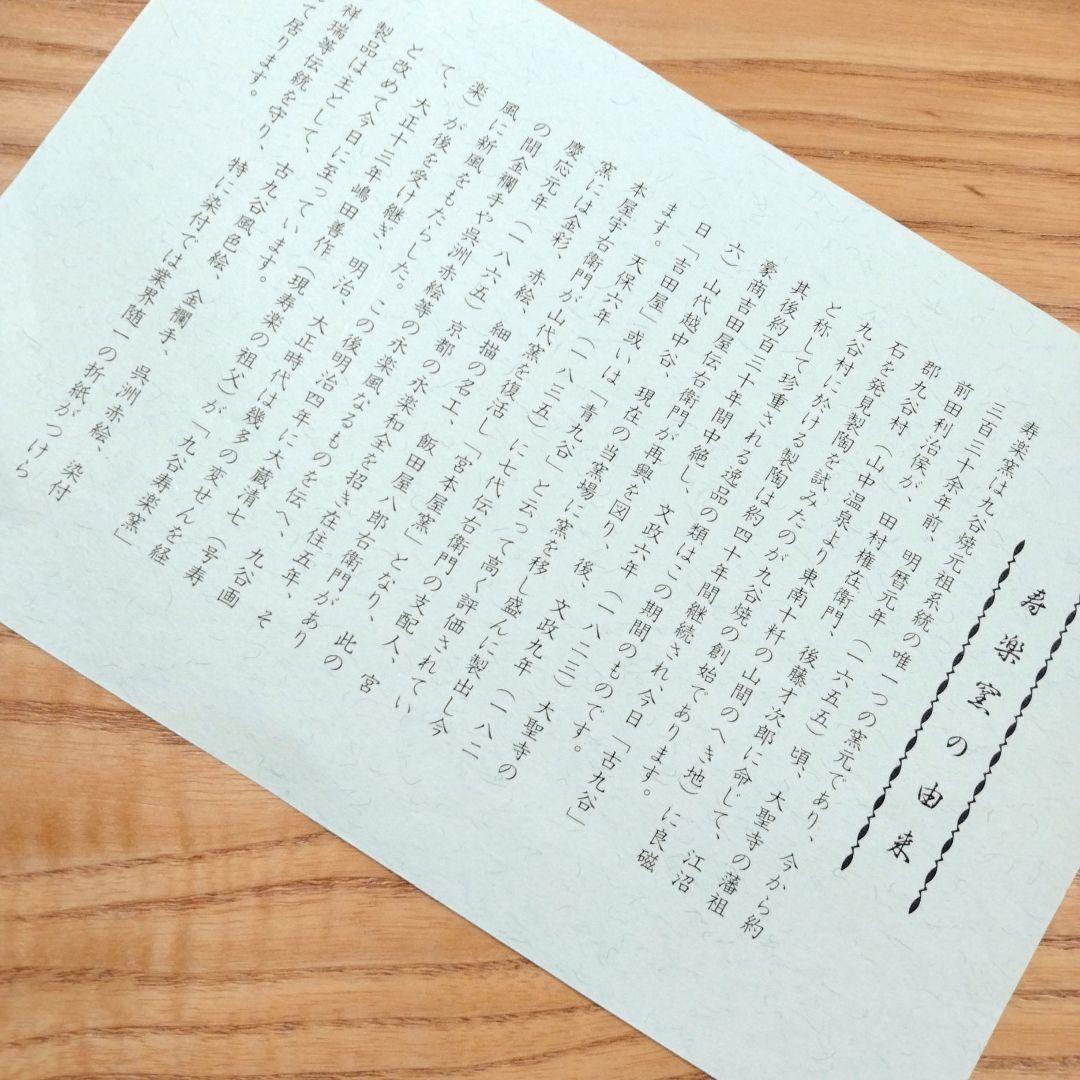 寿楽窯の由来
寿楽窯は九谷焼元祖系統の唯一つの窯元であり、今から約
三百三十余年前、明暦元年(一六五五)頃、大聖寺の藩祖
前田利治侯が、田村権在衛門、後藤才次郎に命じて、江沼
郡九谷村(山中温泉より東南十粁の山間のへき地)に良磁
石を発見製陶を試みたのが九谷焼の創始であります。
九谷村に於ける製陶は約四十年間継続され、今日「古九谷」
と称して珍重される逸品の類はこの期間のものです。
其後約百三十年間中絶し、文政六年(一八二三)大聖寺の
豪商吉田屋伝右衛門が再興を図り、後、文政九年(一八二
六)山代越中谷、現在の当窯場に窯を移し盛んに製出し今
日「吉田屋」或いは「青九谷」と云って高く評価されてい
ます。天保六年(一八三五)に七代伝右衛門の支配人、宮
本屋宇右衛門が山代窯を復活し「宮本屋窯」となり、此の
窯には金彩、赤絵、細描の名工、飯田屋八郎右衛門があり
慶応元年(一八六五)京都の永楽和全を招き在住五年、そ
の間金襴手や呉洲赤絵等の永楽風なるものを伝へ、九谷画
風に新風をもたらした。この後明治四年に大蔵清七(号寿
楽)が後を受け継ぎ、明治、大正時代は幾多の変せんを経
て、大正十三年嶋田善作(現寿楽の祖父)が「九谷寿楽窯」
と改めて今日に至っています。
製品は主として、古九谷風色絵、金襴手、呉洲赤絵、染付
祥瑞等伝統を守り、特に染付では業界随一の折紙がつけら
て居ります。